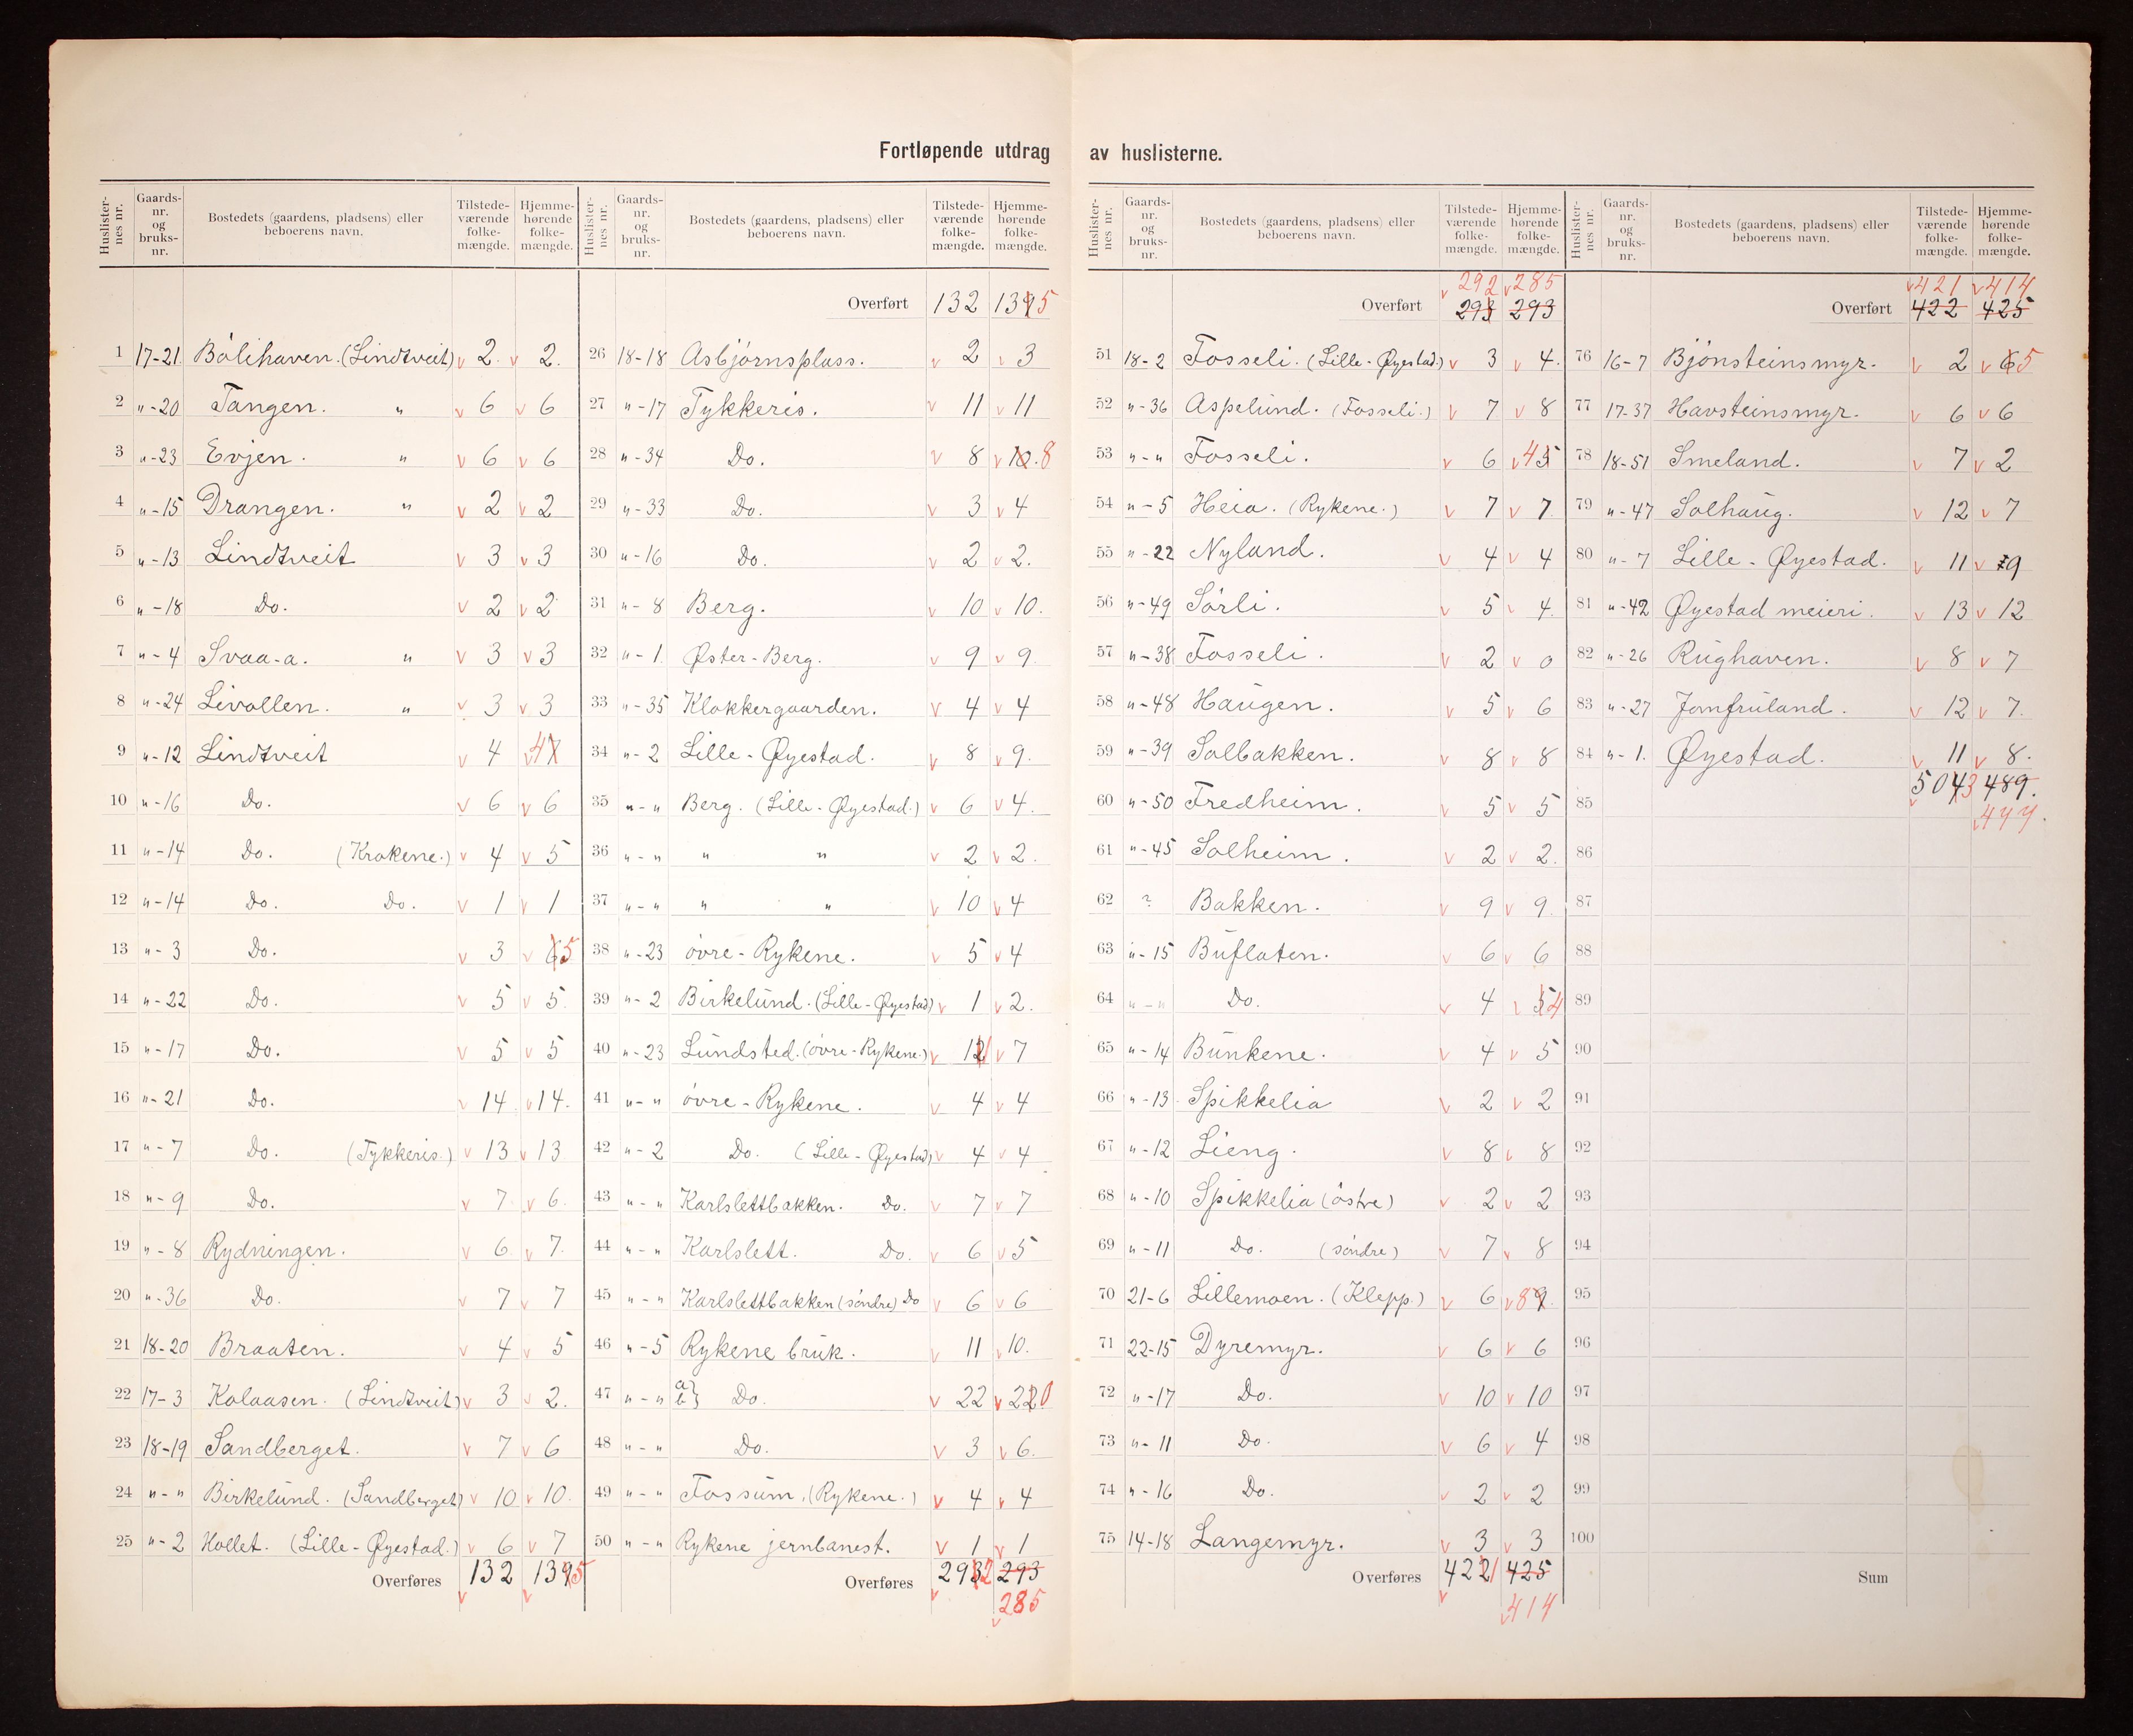 Fortløpende utdrag av huslisterne.
Huslister-nes nr. Gaards-nr. og bruks-nr. Bostedets (gaardens, pladsens) eller beboerens navn. Tilstede-værende folke-mængde. Hjemme-hørende folke-mængde.
1 17-21 Bólihaven. (Lindtveit) v 2. v 2.
2 "-20 Tangen. " v 6 v 6
3 "-23 Evjen. " v 6 v 6
4 "-15 Drangen. " v 2 v 2
5 "-13 Lindtveit v 3 v 3
6 "-18 Do. v 2 v 2
7 "-4 Svaa-a. " v 3 v 3
8 "-24 Livollen. " v 3 v 3
9 "-12 Lindtveit v 4 v 47
10 "-16 Do. v 6 v 6
11 "-14 Do. (Krokene.) v 4 v 5
12 "-14 Do. Do. v 1 v 1
13 "-3 Do. v 3 v 65
14 "-22 Do. v 5 v 5.
15 "-17 Do. v 5 v 5
16 "-21 Do. v 14 v 14.
17 "-7 Do. (Tykkeris.) v 13 v 13
18 "-9 Do. v 7 v 6.
19 "-8 Rydningen. v 6 v 7.
20 "-36 Do. v 7 v 7
21 18-20 Braaten. v 4 v 5
22 17-3 Kolaasen. (Lindtveit) v 3 v 2.
23 18-19 Sandberget. v 7 v 6
24 "-" Birkelund. (Sandberget) v 10 v 10.
25 "-2 Hollet. (Lille-Øyestad.) v 6 v 7
Overføres 132 1395
v v
Huslister-nes nr. Gaards-nr. og bruks-nr. Bostedets (gaardens, pladsens) eller beboerens navn. Tilstede-værende folke-mængde. Hjemme-hørende folke-mængde.
Overført 132 1395
26 18-18 Asbjórnsplass. v 2 v 3
27 "-17 Tykkeris. v 11 v 11
28 "-34 Do. v 8 v 10.8
29 "-33 Do. v 3 v 4
30 "-16 Do. v 2 v 2.
31 "-8 Berg. v 10 v 10.
32 "-1. Øster-Berg. v 9 v 9.
33 "-35 Klokkergaarden. v 4 v 4
34 "-2 Lille-Øyestad. v 8 v 9.
35 "-" Berg. (Lille-Øyestad.) v 6 v 4.
36 "-" " " v 2 v 2.
37 "-" " " v 10 v 4
38 "-23 óvre-Rykene. v 5 v 4
39 "-2 Birkelund. (Lille-Øyestad) v 1 v 2.
40 "-23 Lundsted. (óvre-Rykene.) v 121 v 7
41 "-" óvre-Rykene. v 4 v 4
42 "-2 Do. (Lille-Øyestad) v 4 v 4
43 "-" Karlslettbakken. Do. v 7 v 7
44 "-" Karlslett. Do. v 6 v 5
45 "-" Karlslettbakken (sóndre) Do v 6 v 6
46 "-5 Rykene bruk. v 11 v 10.
47 "-" a b} Do. v 22 v 220
48 "-" Do. v 3 v 6.
49 "-" Fossum. (Rykene.) v 4 v 4
50 "-" Rykene jernbanest. v 1 v 1
Overføres 2932 293
v v 285
Huslister-nes nr. Gaards-nr. og bruks-nr. Bostedets (gaardens, pladsens) eller beboerens navn. Tilstede-værende folke-mængde. Hjemme-hørende folke-mængde.
v 292 v 285
Overført 293 293
51 18-2 Fosseli. (Lille-Øyestad.) v 3 v 4.
52 "-36 Aspelund. (Fosseli.) v 7 v 8
53 "-" Fosseli. v 6 v 45
54 "-5 Heia. (Rykene.) v 7 v 7
55 "-22 Nyland. v 4 v 4
56 "-49 Sórli. v 5 v 4.
57 "-38 Fosseli. v 2 v 0
58 "-48 Haugen. v 5 v 6
59 "-39 Solbakken. v 8 v 8
60 "-50 Fredheim. v 5 v 5
61 "-45 Solheim. v 2 v 2.
62 ? Bakken. v 9 v 9.
63 "-15 Buflaten. v 6 v 6
64 "-" Do. v 4 v 54
65 "-14 Bunkene. v 4 v 5
66 "-13. Spikkelia v 2 v 2
67 "-12 Lieng. v 8 v 8
68 "-10 Spikkelia (óstre) v 2 v 2
69 "-11 Do. (sóndre) v 7 v 8
70 21-6 Lillemoen. (Klepp.) v 6 v 89.
71 22-15 Dyremyr. v 6 v 6
72 "-17 Do. v 10 v 10
73 "-11 Do. v 6 v 4
74 "-16 Do. v 2 v 2
75 14-18 Langemyr. v 3 v 3
Overføres 4221 425
v v 414
Huslister-nes nr. Gaards-nr. og bruks-nr. Bostedets (gaardens, pladsens) eller beboerens navn. Tilstede-værende folke-mængde. Hjemme-hørende folke-mængde.
v 421 v 414
Overført 422 425
76 16-7 Bjónsteinsmyr. v 2 v 65
77 17-37 Havsteinsmyr. v 6 v 6
78 18-51 Smeland. v 7 v 2
79 "-47 Solhaug. v 12 v 7
80 "-7 Lille-Øyestad. v 11 v 79
81 "-42 Øyestad meieri. v 13 v 12
82 "-26 Rughaven. v 8 v 7
83 "-27 Jomfruland. v 12 v 7.
84 "-1. Øyestad. v 11 v 8.
5043 489.
85 v v 477.
86
87
88
89
90
91
92
93
94
95
96
97
98
99
100
Sum